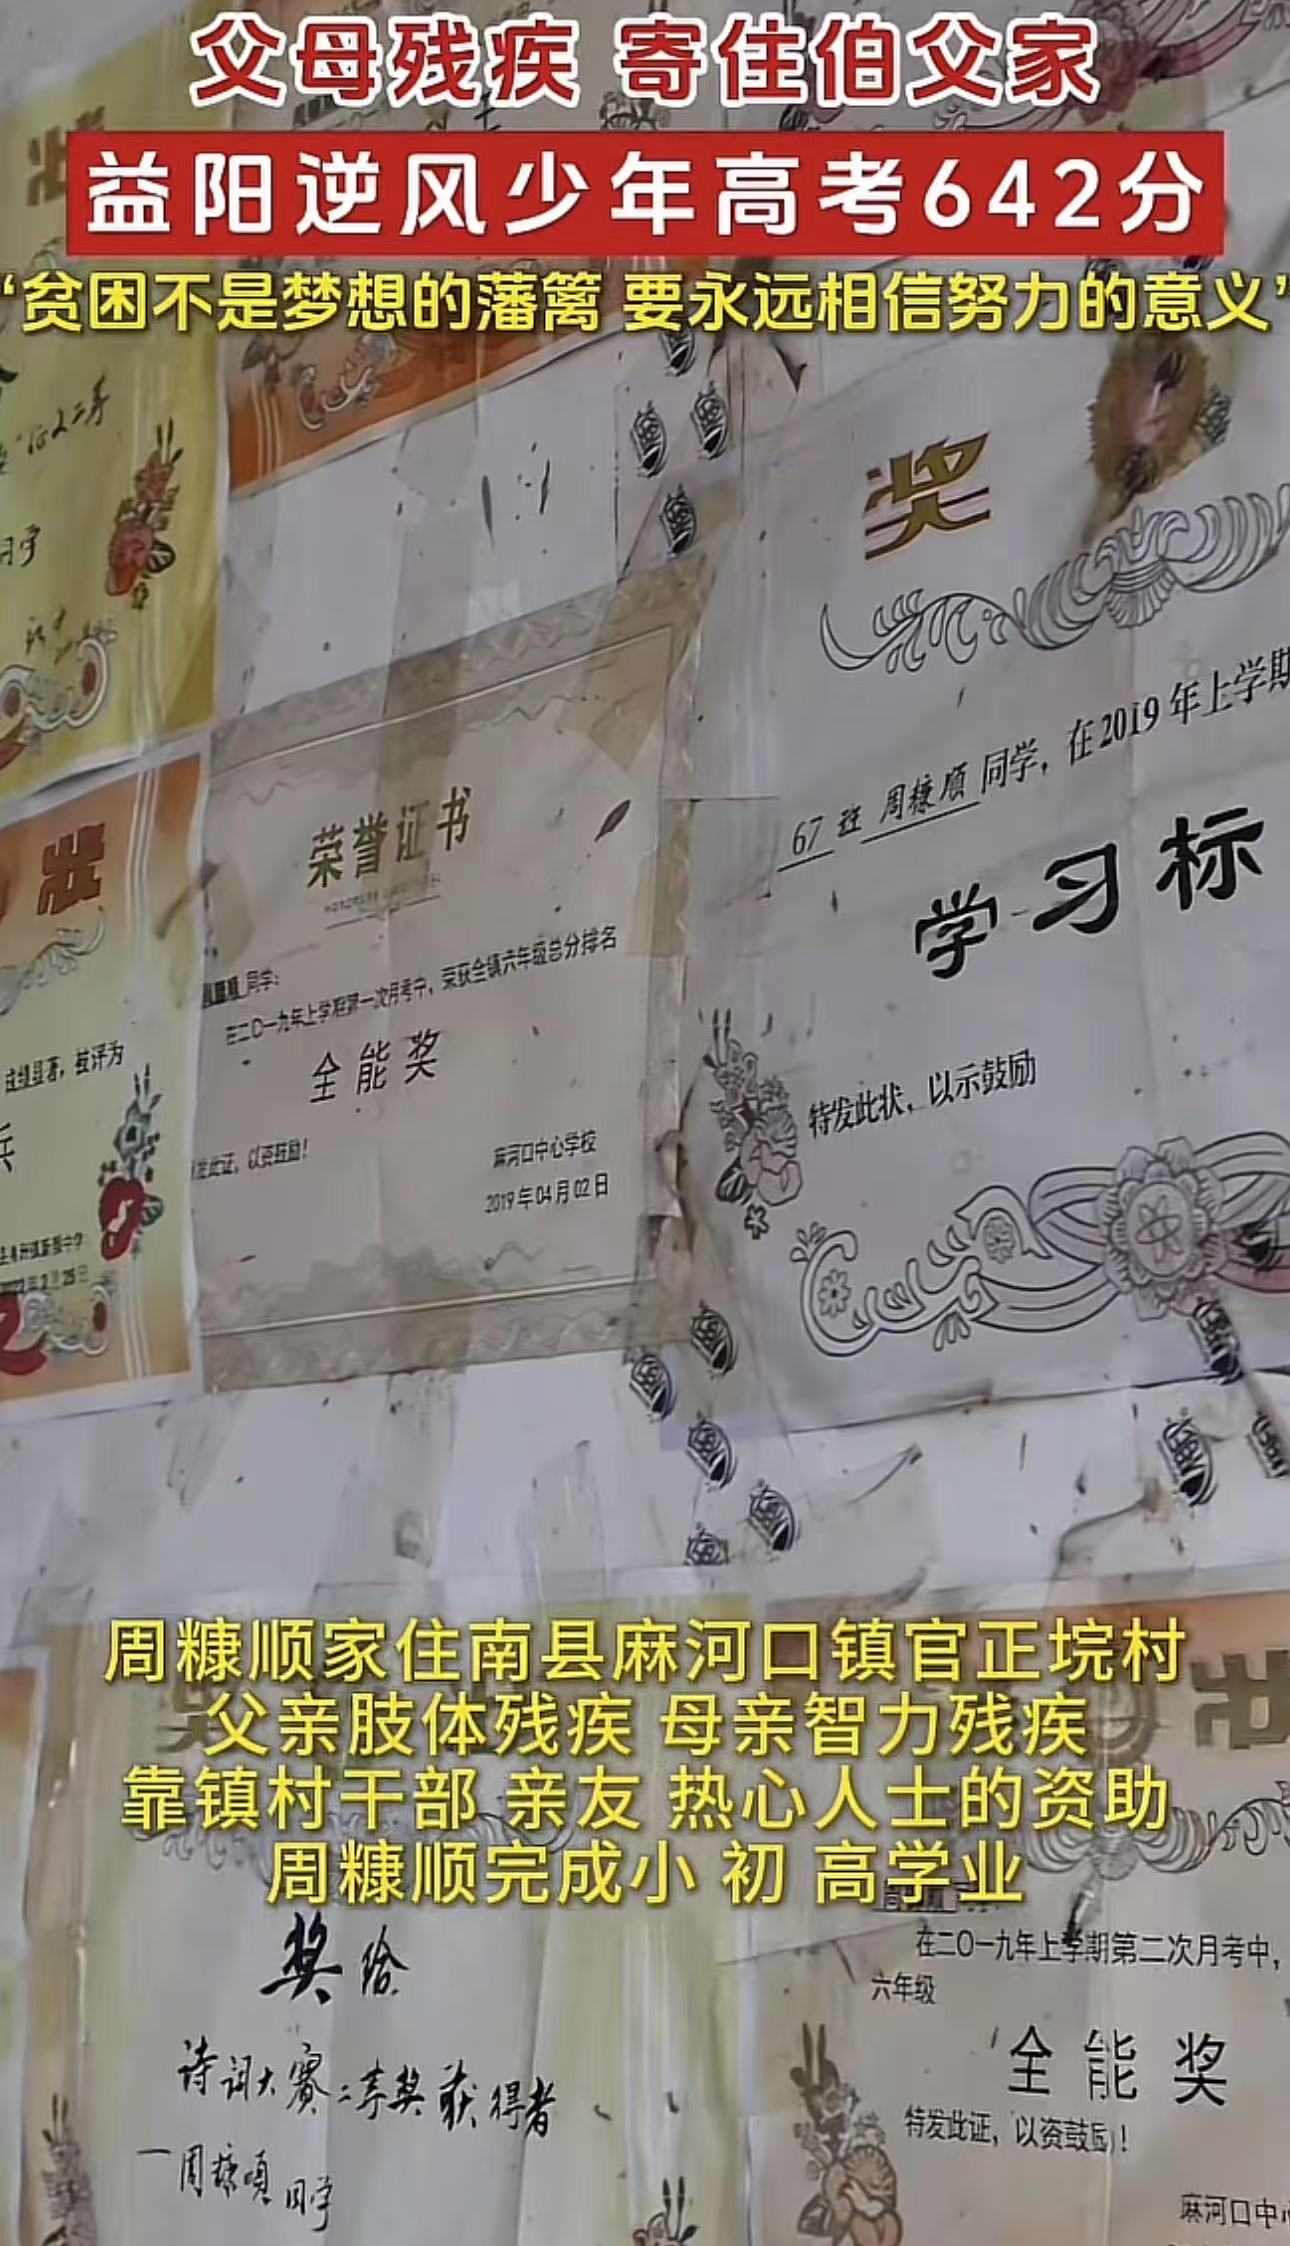 父母残疾 寄住伯父家
益阳逆风少年高考642分
“贫困不是梦想的藩篱 要永远相信努力的意义”
状
奖
67 班 周糠顺 同学，在2019年上学期
学习标
特发此状，以示鼓励
荣誉证书
同学：
在二〇一九年上学期第一次月考中，荣获全镇六年级总分排名
全能奖
以资鼓励！
麻河口中心学校
2019年04月02日
状
成绩显著，被评为
兵
周糠顺家住南县麻河口镇官正垸村
父亲肢体残疾 母亲智力残疾
靠镇村干部 亲友 热心人士的资助
周糠顺完成小 初 高学业
状
奖给
诗词大赛二等奖获得者
—周糠顺同学
在二〇一九年上学期第二次月考中，
六年级
全能奖
特发此证，以资鼓励！
麻河口中心